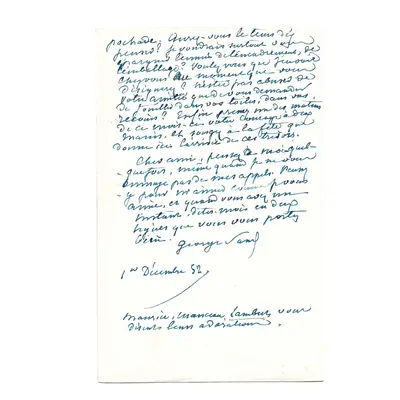 pochade. Aurez-vous le tems d'y
penser? Je voudrais surtout vous
épargner l'ennui de l'encadrement, de
l'emballage? Voulez vous que j'envoie
chez vous au moment que vous
désignerez? N'est-ce pas abuser de
votre amitié que de vous demander
de fouiller dans vos toiles, dans vos
recoins? Enfin prenez un des matins
de ce mois-ci votre courage à deux
mains. Et songez à la fête que
donnera ici l'arrivée de ces trésors.
Cher ami, pensez à moi quel-
quefois, même quand je ne vous
ennuye pas de mes appels. Pensez
y pour m'aimer comme je vous
aime, et quand vous avez un
instant, dites-moi en deux
lignes que vous vous portez
bien.
George Sand
1er Décembre 52
Maurice, Manceau, Lambert, vous
disent leurs adorations.